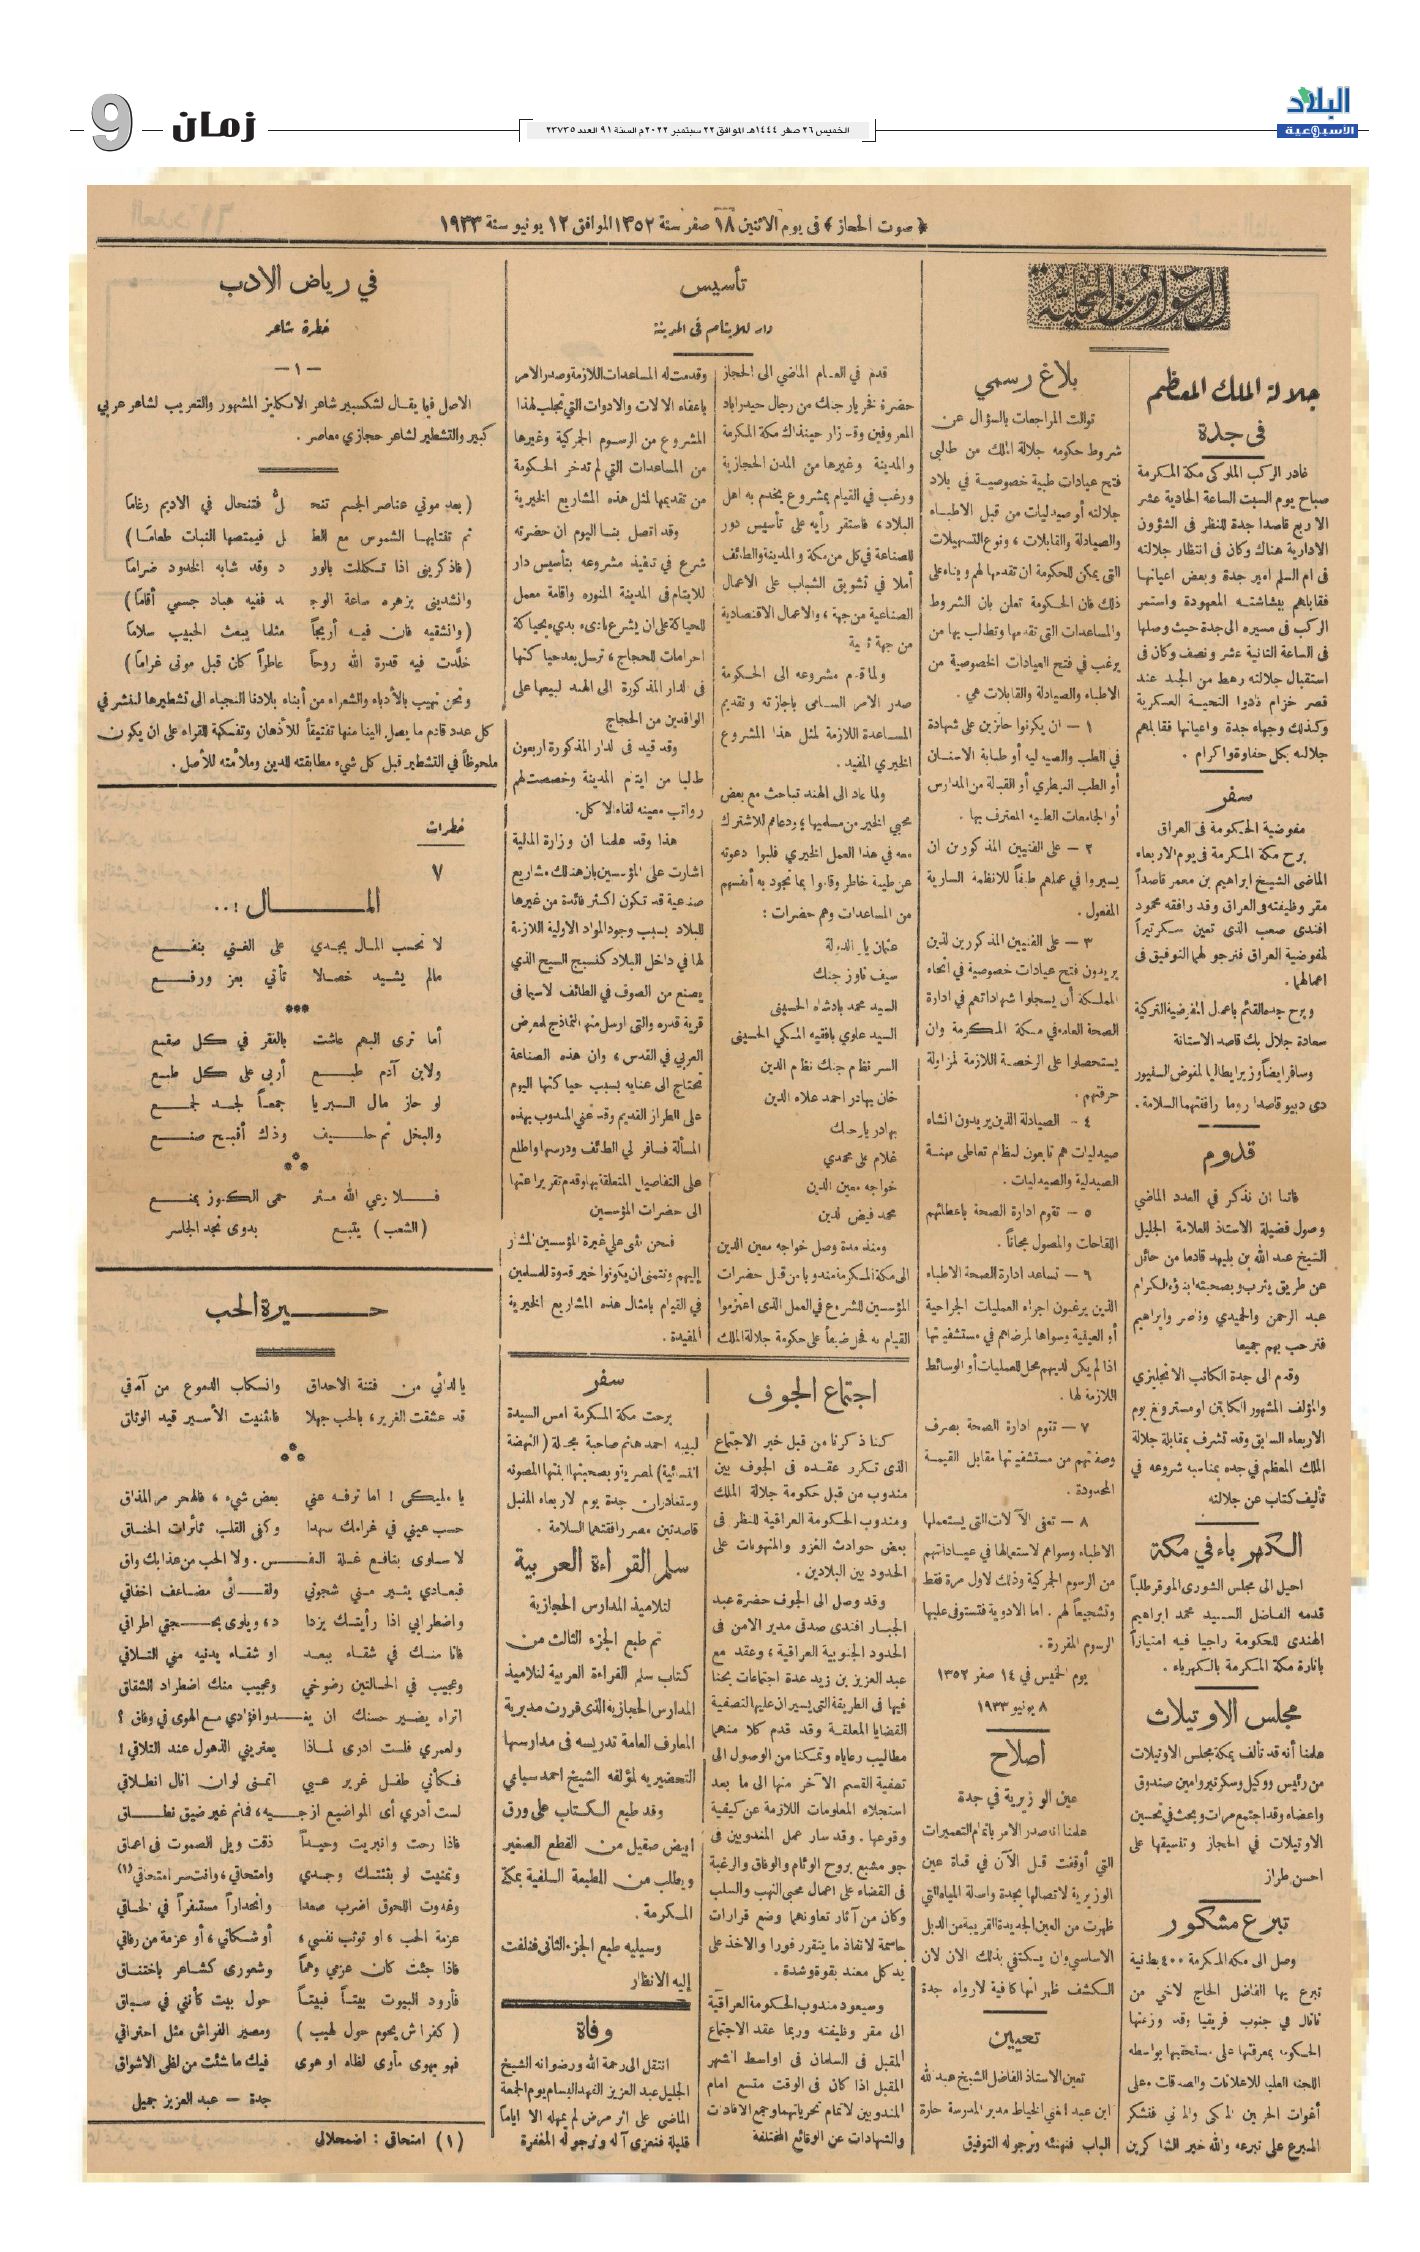 البلاد
الأسبوعية
الخميس ٢٦ صفر ١٤٤٤هـ الموافق ٢٢ سبتمبر ٢٠٢٢م السنة ٩١ العدد ٢٣٧٣٥
زمان
9
﴿ صوت الحجاز ﴾ في يوم الاثنين ١٨ صفر سنة ١٣٥٢ الموافق ١٢ يونيو سنة ١٩٣٣
الحوادث المحلية
جلالة الملك المعظم
في جدة
غادر الركب الملوكي مكة المكرمة
صباح يوم السبت الساعة الحادية عشر
الأربع قاصدا جدة للنظر في الشؤون
الادارية هناك وكان في انتظار جلالته
في ام السلم امير جدة وبعض اعيانها
فقابلهم ببشاشته المعهودة واستمر
الركب في مسيره الى جدة حيث وصلها
في الساعة الثانية عشر ونصف وكان في
استقبال جلالته رهط من الجند عند
قصر خزام فأدوا التحية العسكرية
وكذلك وجهاء جدة واعيانها فقابلهم
جلالته بكل حفاوة واكرام .
سفر
مفوضية الحكومة في العراق
برح مكة المكرمة في يوم الاربعاء
الماضي الشيخ ابراهيم بن معمر قاصداً
مقر وظيفته في العراق وقد رافقه محمود
افندي صعب الذي تعين سكرتيراً
لمفوضية العراق فنرجو لهما التوفيق في
اعمالهما .
وبرح جده القائم باعمال المفوضية التركية
سعادة جلال بك قاصد الاستانة
وسافر ايضاً وزير ايطاليا المفوض السنيور
دي دبيو قاصدا روما رافقتهما السلامة .
قدوم
فاتنا ان نذكر في العدد الماضي
وصول فضيلة الاستاذ العلامة الجليل
الشيخ عبد الله بن بليهد قادما من حائل
عن طريق يثرب وبصحبته ابناؤه الكرام
عبد الرحمن والحميدي وناصر وابراهيم
فنرحب بهم جميعا
وقدم الى جدة الكاتب الانجليزي
والمؤلف المشهور الكابتن اومسترونغ يوم
الاربعاء السابق وقد تشرف بمقابلة جلالة
الملك المعظم في جده بمناسبه شروعه في
تأليف كتاب عن جلالته
الكهرباء في مكة
احيل الى مجلس الشورى الموقر طلباً
قدمه الفاضل السيد محمد ابراهيم
الهندي للحكومة راجيا فيه امتيازاً
بانارة مكة المكرمة بالكهرباء .
مجلس الاوتيلات
علمنا أنه قد تألف بمكة مجلس الاوتيلات
من رئيس ووكيل وسكرتير وامين صندوق
واعضاء وقد اجتمع مرات وبحث في تحسين
الاوتيلات في الحجاز وتنسيقها على
احسن طراز
تبرع مشكور
وصل الى مكه المكرمة ٤٠٠ بطنية
تبرع بها الفاضل الحاج لاخي من
ناتال في جنوب فريقيا وقد وزعتها
الحكومة بمعرفتها على مستحقيها بواسطه
اللجنه العليا للاعانات والصدقات وعلى
أغوات الحرمين المكي والمدني فنشكر
المتبرع على تبرعه والله خير الشاكرين
بلاغ رسمي
توالت المراجعات بالسؤال عن
شروط حكومه جلالة الملك من طالبي
فتح عيادات طبية خصوصية في بلاد
جلالته أو صيدليات من قبل الاطباء
والصيادلة والقابلات ، ونوع التسهيلات
التي يمكن للحكومة ان تقدمها لهم وبناء على
ذلك فان الحكومة تعلن بان الشروط
والمساعدات التي تقدمها وتطلب بها من
يرغب في فتح العيادات الخصوصية من
الاطباء والصيادلة والقابلات هي .
١ – ان يكونوا حائزين على شهادة
في الطب والصيدلية أو طبابة الاسنان
أو الطب البيطري أو القبالة من المدارس
أو الجامعات الطبيه المعترف بها .
٢ – على الفنيين المذكورين ان
يسيروا في عملهم طبقاً للانظمة السارية
المفعول .
٣ – على الفنيين المذكورين الذين
يريدون فتح عيادات خصوصية في انحاء
المملكة أن يسجلوا شهاداتهم في ادارة
الصحة العامه في مكة المكرمة وان
يستحصلوا على الرخصة اللازمة لمزاولة
حرفتهم .
٤ – الصيادلة الذين يريدون انشاء
صيدليات هم تابعون لنظام تعاطي مهنة
الصيدلية والصيدليات .
٥ – تقوم ادارة الصحة باعطائهم
اللقاحات والمصول مجاناً .
٦ – تساعد ادارة الصحة الاطباء
الذين يرغبون اجراء العمليات الجراحية
أو العينية وسواها لمرضاهم في مستشفيتها
اذا لم يكن لديهم محل للعمليات أو الوسائط
اللازمة لها .
٧ – تقوم ادارة الصحة بصرف
وصفتهم من مستشفيتها مقابل القيمة
المحدودة .
٨ – تعفى الآلات التي يستعملها
الاطباء وسواهم لاستعمالها في عياداتهم
من الرسوم الجمركية وذلك لاول مرة فقط
وتشجيعاً لهم . اما الادوية فتستوفى عليها
الرسوم المقررة .
يوم الخميس في ١٤ صفر ١٣٥٢
٨ يونيو ١٩٣٣
اصلاح
عين الوزيرية في جدة
علمنا انه صدر الامر باتمام التعميرات
التي أوقفت قبل الآن في قناة عين
الوزيرية لاتصالها بجدة واسالة المياه التي
ظهرت من العين الجديدة القريبة من الدبل
الاساسي وان يكتفي بذلك الان لان
الكشف ظهر انها كافية لارواء جدة
تعيين
تعين الاستاذ الفاضل الشيخ عبد لله
ابن عبد الغني الخياط مدير المدرسة حارة
الباب فنهنئه ونرجو له التوفيق
تأسيس
دار للايتام في المدينة
قدم في العام الماضي الى الحجاز
حضرة نخريار جنك من رجال حيدراباد
المعروفين وقد زار حينذاك مكة المكرمة
والمدينة وغيرها من المدن الحجازية
ورغب في القيام بمشروع يخدم به اهل
البلاد ، فاستقر رأيه على تأسيس دور
للصناعة في كل من مكة والمدينة والطائف
أملا في تشويق الشباب على الاعمال
الصناعية من جهة ، والاعمال الاقتصادية
من جهة ثانية
ولما قدم مشروعه الى الحكومة
صدر الامر السامي باجازته وتقديم
المساعدة اللازمة لمثل هذا المشروع
الخيري المفيد .
ولما عاد الى الهند تباحث مع بعض
محبي الخير من مسلميها ، ودعاهم للاشتراك
معه في هذا العمل الخيري فلبوا دعوته
عن طيبة خاطر وقاموا بما تجود به أنفسهم
من المساعدات وهم حضرات :
عثمان يار الدولة
سيف نواز جنك
السيد محمد بادشاه الحسيني
السيد علوي بافقيه المكي الحسيني
السر نظام جنك نظام الدين
خان بهادر احمد علاء الدين
بهادر يار جنك
غلام علي محمدي
خواجه معين الدين
محمد فيض الدين
ومنذ مدة وصل خواجه معين الدين
الى مكة المكرمة مندوبا من قبل حضرات
المؤسسين للشروع في العمل الذي اعتزموا
القيام به فحل ضيفاً على حكومة جلالة الملك
وقدمت له المساعدات اللازمة وصدر الامر
باعفاء الالات والادوات التي تجلب لهذا
المشروع من الرسوم الجمركية وغيرها
من المساعدات التي لم تدخر الحكومة
من تقديمها لمثل هذه المشاريع الخيرية
وقد اتصل بنا اليوم ان حضرته
شرع في تنفيذ مشروعه بتأسيس دار
للايتام في المدينة المنوره واقامة معمل
للحياكة على ان يشرع بادىء بدىء بحياكة
احرامات للحجاج ، ترسل بعد حياكتها
في الدار المذكورة الى الهند لبيعها على
الوافدين من الحجاج
وقد قيد في لدار المذكورة اربعون
طالبا من ايتام المدينة وخصصت لهم
رواتب معينه لقاء الاكل .
هذا وقد علمنا ان وزارة المالية
اشارت على المؤسسين بان هنالك مشاريع
صناعية قد تكون اكثر فائدة من غيرها
للبلاد بسبب وجود المواد الاولية اللازمة
لها في داخل البلاد كنسيج السيح الذي
يصنع من الصوف في الطائف لاسيما في
قرية قدره والتي ارسل منها النماذج لمعرض
العربي في القدس ، وان هذه الصناعة
تحتاج الى عنايه بسبب حياكتها اليوم
على الطراز القديم وقد عني المندوب بهذه
المسألة فسافر الى الطائف ودرسها واطلع
على التفاصيل المتعلقة بها وقدم تقريرا عنها
الى حضرات المؤسسين
فنحن نثني على غيرة المؤسسين المشار
إليهم ونتمنى ان يكونوا خير قدوة للمسلمين
في القيام بامثال هذه المشاريع الخيرية
المفيدة .
اجتماع الجوف
كنا ذكرنا من قبل خبر الاجتماع
الذي تكرر عقده في الجوف بين
مندوب من قبل حكومة جلالة الملك
ومندوب الحكومة العراقية للنظر في
بعض حوادث الغزو والمنهوبات على
الحدود بين البلادين .
وقد وصل الى الجوف حضرة عبد
الجبار افندي صدقي مدير الامن في
الحدود الجنوبية العراقية ، وعقد مع
عبد العزيز بن زيد عدة اجتماعات بحثا
فيها في الطريقة التي يسيران عليها لتصفية
القضايا المعلقة وقد قدم كلا منهما
مطاليب رعاياه وتمكنا من الوصول الى
تصفية القسم الآخر منها الى ما بعد
استجلاء المعلومات اللازمة عن كيفية
وقوعها . وقد سار عمل المندوبين في
جو مشبع بروح الوئام والوفاق والرغبة
في القضاء على اعمال محبي النهب والسلب
وكان من آثار تعاونهما وضع قرارات
حاسمة لانفاذ ما يتقرر فورا والاخذ على
يد كل معتد بقوة وشدة .
وسيعود مندوب الحكومة العراقية
الى مقر وظيفته وربما عقد الاجتماع
المقبل في السلمان في اواسط الشهر
المقبل اذا كان في الوقت متسع امام
المندوبين لاتمام تحرياتهما وجمع الافادات
والشهادات عن الوقائع المختلفة
سفر
برحت مكة المكرمة امس السيدة
لبيبه احمد هانم صاحبة مجلة ( النهضة
النسائية ) لمصرية وبصحبتها ابنتها المصونه
وستغادران جدة يوم لاربعاء المقبل
قاصدتين مصر رافقتهما السلامة .
سلم القراءة العربية
لتلاميذ المدارس الحجازية
تم طبع الجزء الثالث من
كتاب سلم القراءة العربية لتلاميذ
المدارس الحجازيه الذي قررت مديرية
المعارف العامة تدريسه في مدارسها
التحضيريه لمؤلفه الشيخ احمد سباعي
وقد طبع الكتاب على ورق
ابيض صقيل من القطع الصغير
ويطلب من المطبعة السلفية بمكة
المكرمة .
وسيليه طبع الجزء الثاني فنلفت
إليه الانظار
وفاة
انتقل الى رحمة الله ورضوانه الشيخ
الجليل عبد العزيز الفهد البسام يوم الجمعة
الماضي على اثر مرض لم يمهله الا اياماً
قليلة فنعزي آله ونرجو له المغفرة
في رياض الادب
خطرة شاعر
– ١ –
الاصل فيما يقال لشكسبير شاعر الانكليز المشهور والتعريب لشاعر عربي
كبير والتشطير لشاعر حجازي معاصر .
( بعد موتي عناصر الجسم تنحـ لُّ فتنحال في الاديم رغاما
ثم تفتابها الشموس مع الطـ ل فيمتصها النبات طعامًـا )
( فاذكريني اذا تكللت بالور د وقد شابه الخدود ضراما
وانشديني بزهره ساعة الوجـ ـد ففيه هباء جسمي أقاما )
( وانشقيه فان فيه أريجاً مثلما يبعث الحبيب سلاما
خلّدت فيه قدرة الله روحاً عاطراً كان قبل موتي غراما )
ونحن نهيب بالأدباء والشعراء من أبناء بلادنا النجباء الى تشطيرها لننشر في
كل عدد قادم ما يصل الينا منها تفتيقاً للأذهان وتفكهة للقراء على ان يكون
ملحوظاً في التشطير قبل كل شيء مطابقته للدين وملأمته للأصل .
خطرات
٧
المــال !..
لا تحسب المال يجدي على الغني بنفــع
مالم يشيد خصالا تأتي بعز ورفــع
***
أما ترى البهم عاشت بالفقر في كل صقع
ولابن آدم طبــع أربى على كل طبع
لو حاز مال البريا جمعـاً لجد لجمع
والبخل ثم حليف وذاك أقبح صنع
***
فــلا رعي الله مثر حمى الكنوز بمنع
(الشعب ) يتبع بدوى نجد الجاسر
حيرة الحب
يالدائي من فتنة الاحداق وانسكاب الدموع من آماقي
قد عشقت الغرير ، بالحب جهلا فانثنيت الأسير قيد الوثاق
***
يا مليكي ! اما ترفه عني بعض شيء ، فالهجر مر المذاق
حسب عيني في غرامك سهدا وكفى القلب ثائرات الخناق
لا سلوى بنافع غلة النفـس . ولا الحب من عذابك واق
فبعادي يثير مني شجوني ولقــائي مضاعف اخفاقي
واضطرابي اذا رأيتك يزدا د ، ويلوى بحجتي اطراقي
فانا منك في شقاء ببعد او شقاء يدنيه مني التلاقي
وعجيب في الحالتين رضوخي وعجيب منك اضطراد الشقاق
اتراه يضير حسنك ان يغـدو افؤادي مع الهوى في وفاق ؟
ولعمري فلست ادرى لماذا يعتريني الذهول عند التلاقي !
فكأني طفل غرير عيي اتمنى لو ان انال انطلاقي
لست أدري أي المواضيع ازجيه ، فمانم غير ضيق نطاق
فاذا رحت وانبريت وحيداً ذقت ويل الصموت في اعماق
وتمنيت لو بثثتك وجدي وامتحاقي ، وانت سر امتحاقي (١)
وغدوت اللحوق اضرب صعدا وانحداراً مستنفراً في لحاقي
عزمة الحب ، او توثب نفسي ، أو شكاتي ، أو عزمة من رفاقي
فاذا جئت كان عزمي وهماً وشعوري كشاعر باختناق
فأرود البيوت بيتـاً فبيتـاً حول بيت كأنني في سباق
( كفراش يحوم حول لهيب ) ومصير الفراش مثل احتراقي
فهو يهوى مأوى لظاه او هوى فيك ما شئت من لظى الاشواق
جدة – عبد العزيز جميل
(١) امتحاقي : اضمحلالي .